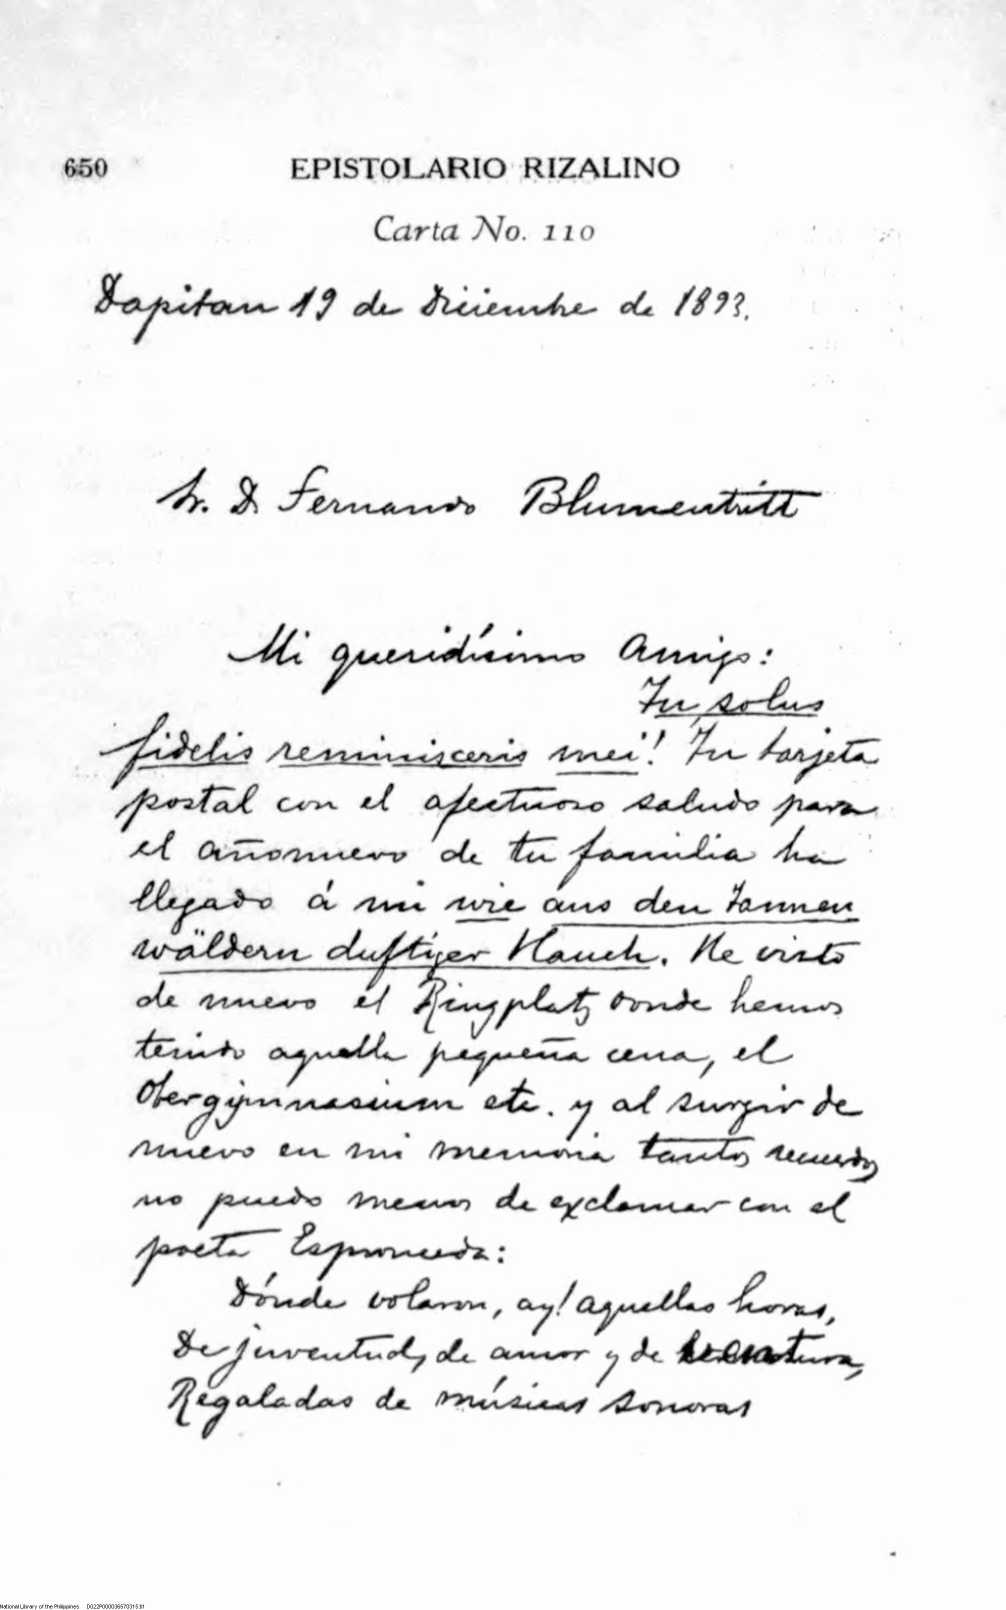 650
EPISTOLARIO RIZALINO
Carta No. 110
Dapitan 19 de Diciembre de 1893.
Sr. D. Fernando Blumentritt
Mi queridísimo Amigo:
Tu solus
fidelis reminisceris mei! Tu tarjeta
postal con el afectuoso saludo para
el añonuevo de tu familia ha
llegado á mi wie aus den Tannen
wäldern duftiger Hauch. He visto
de nuevo el Ringplatz donde hemos
tenido aquella pequeña cena, el
Obergymnasium etc. y al surgir de
nuevo en mi memoria tantos recuerdos
no puedo menos de exclamar con el
poeta Espronceda:
Dónde volaron, ay! aquellas horas,
De juventud, de amor y de
Regaladas de músicas sonoras
National Library of the Philippines